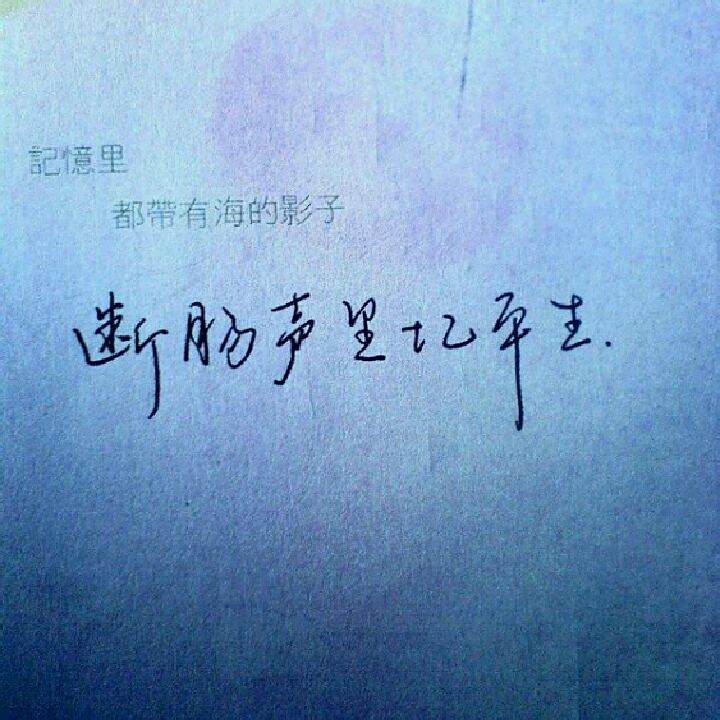 記憶里
都帶有海的影子
断肠声里忆平生.